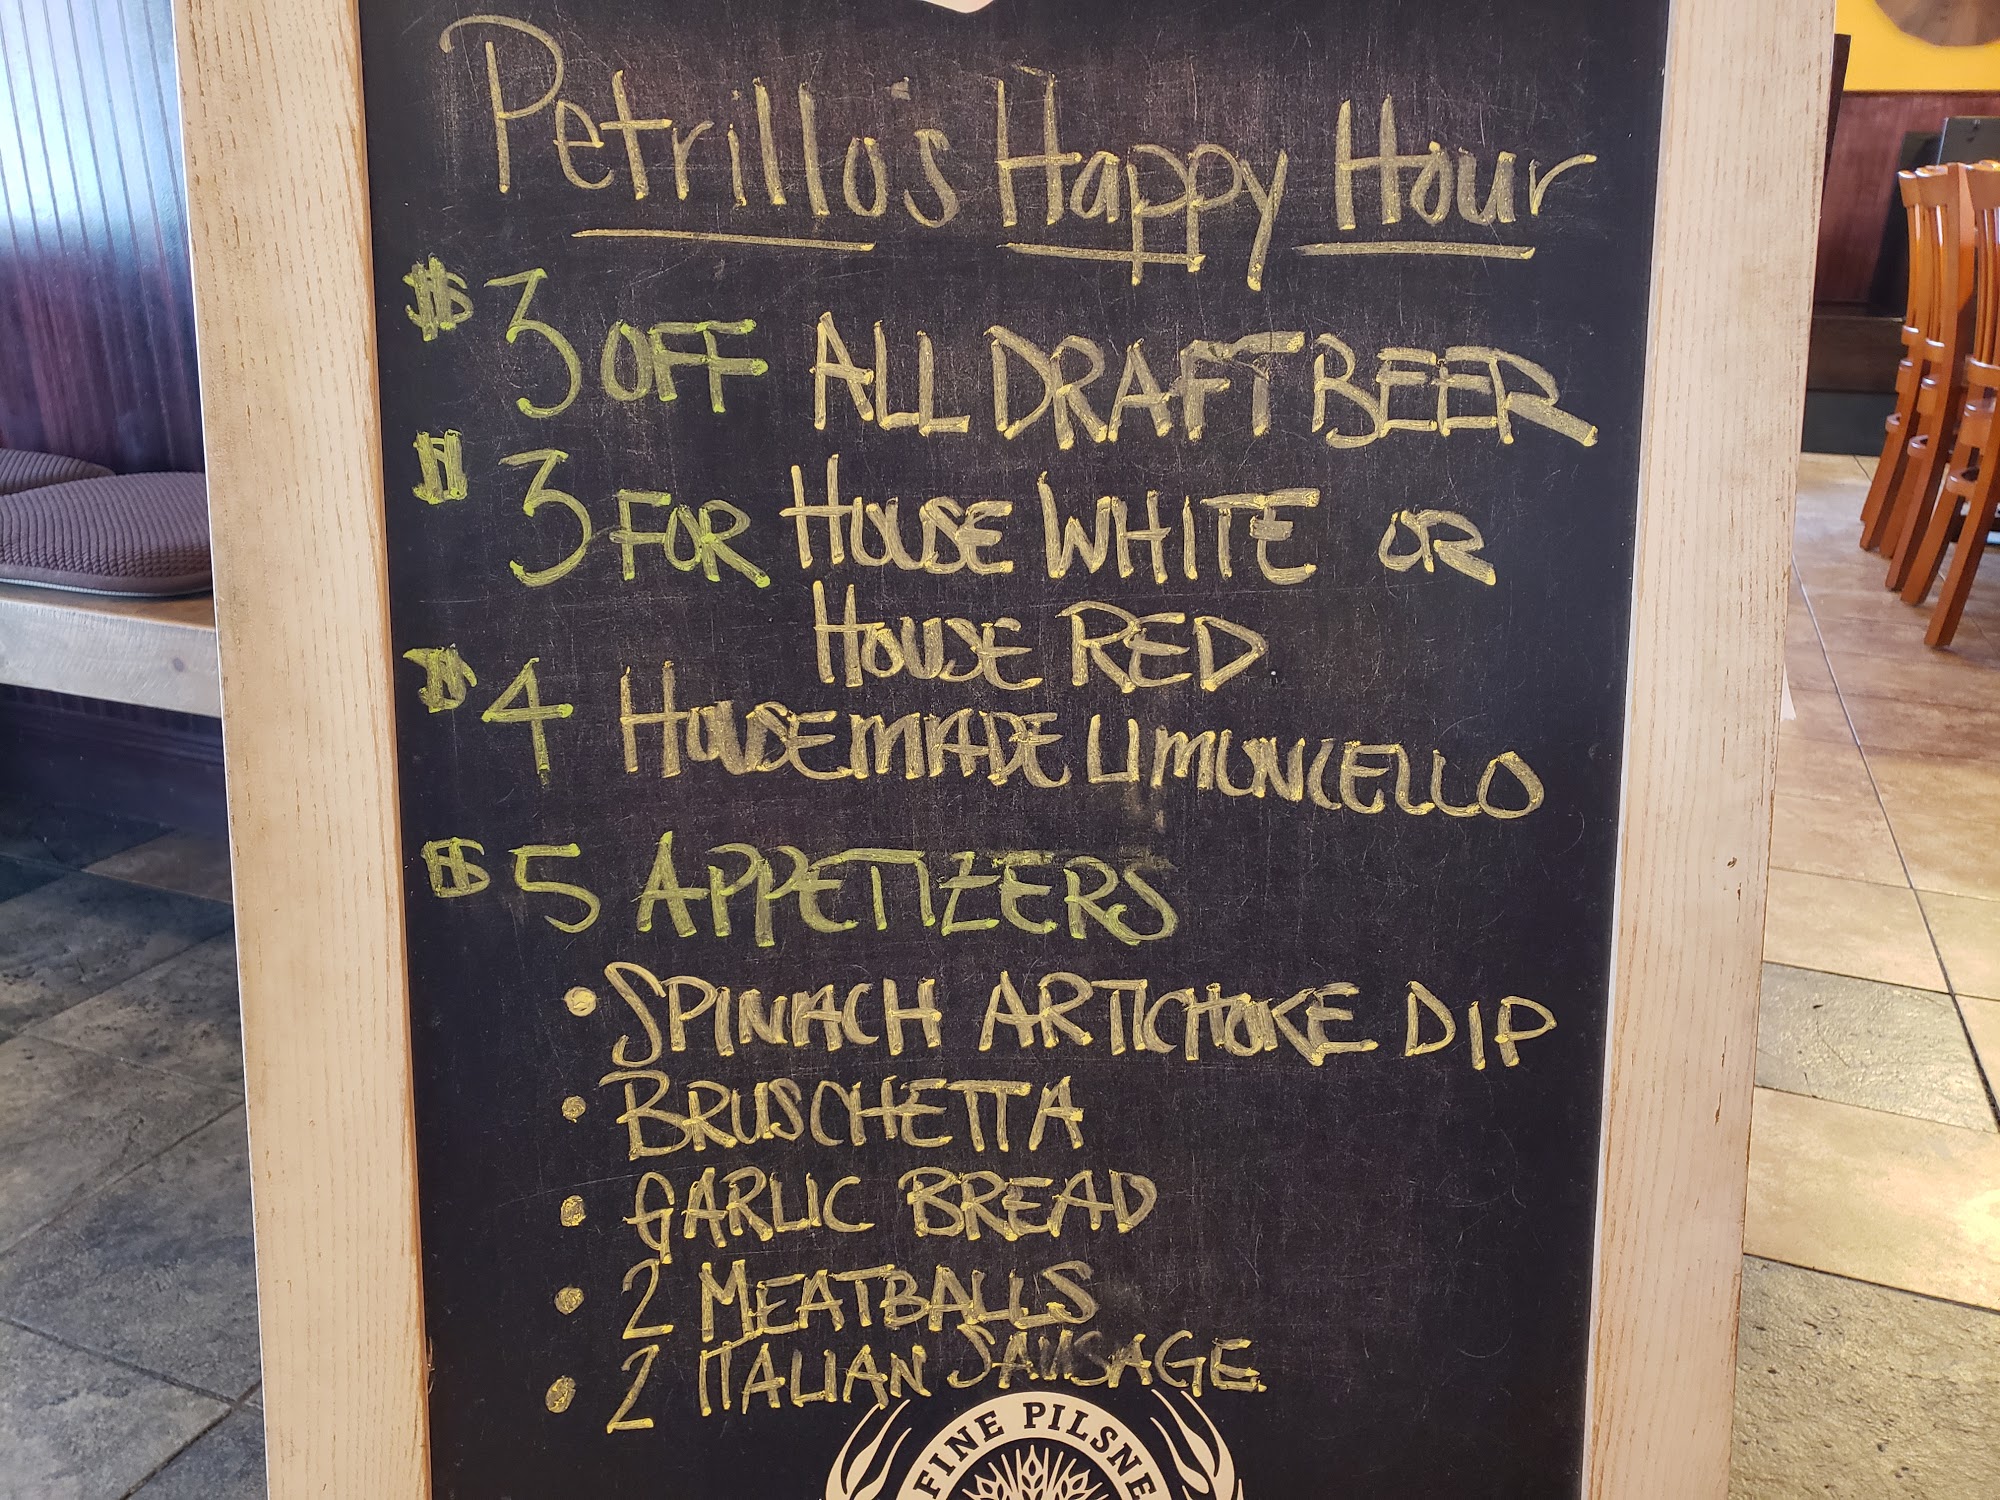 Petrillo's Happy Hour
$3 OFF ALL DRAFT BEER
$3 FOR HOUSE WHITE OR
HOUSE RED
$4 HOUSEMADE LIMONCELLO
$5 APPETIZERS
• SPINACH ARTICHOKE DIP
• BRUSCHETTA
• GARLIC BREAD
• 2 MEATBALLS
• 2 ITALIAN SAUSAGE
FINE PILSNE